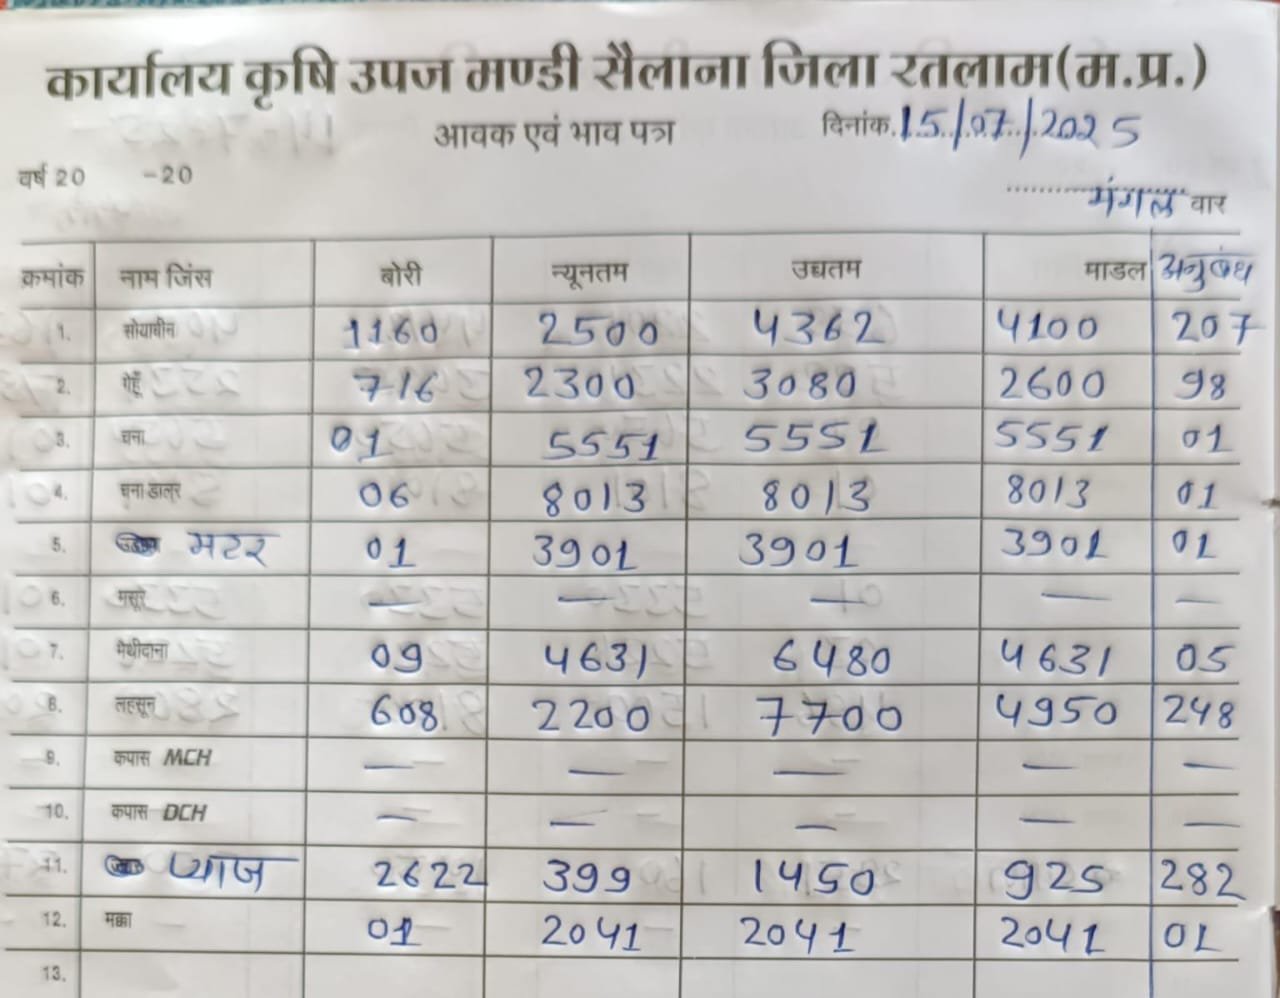 कार्यालय कृषि उपज मण्डी सैलाना जिला रतलाम(म.प्र.)
आवक एवं भाव पत्र दिनांक 15/07/2025
वर्ष 20 -20
मंगल वार
क्रमांक नाम जिंस बोरी न्यूनतम उच्चतम माडल अनुबंध
1. सोयाबीन 1160 2500 4362 4100 207
2. गेहूँ 716 2300 3080 2600 98
3. चना 01 5551 5551 5551 01
4. चना डालर 06 8013 8013 8013 01
5. मटर 01 3901 3901 3901 01
6. मसूर — — — — —
7. मेथीदाना 09 4631 6480 4631 05
8. लहसून 608 2200 7700 4950 248
9. कपास MCH — — — — —
10. कपास DCH — — — — —
11. प्याज 2622 399 1450 925 282
12. मक्का 01 2041 2041 2041 01
13.